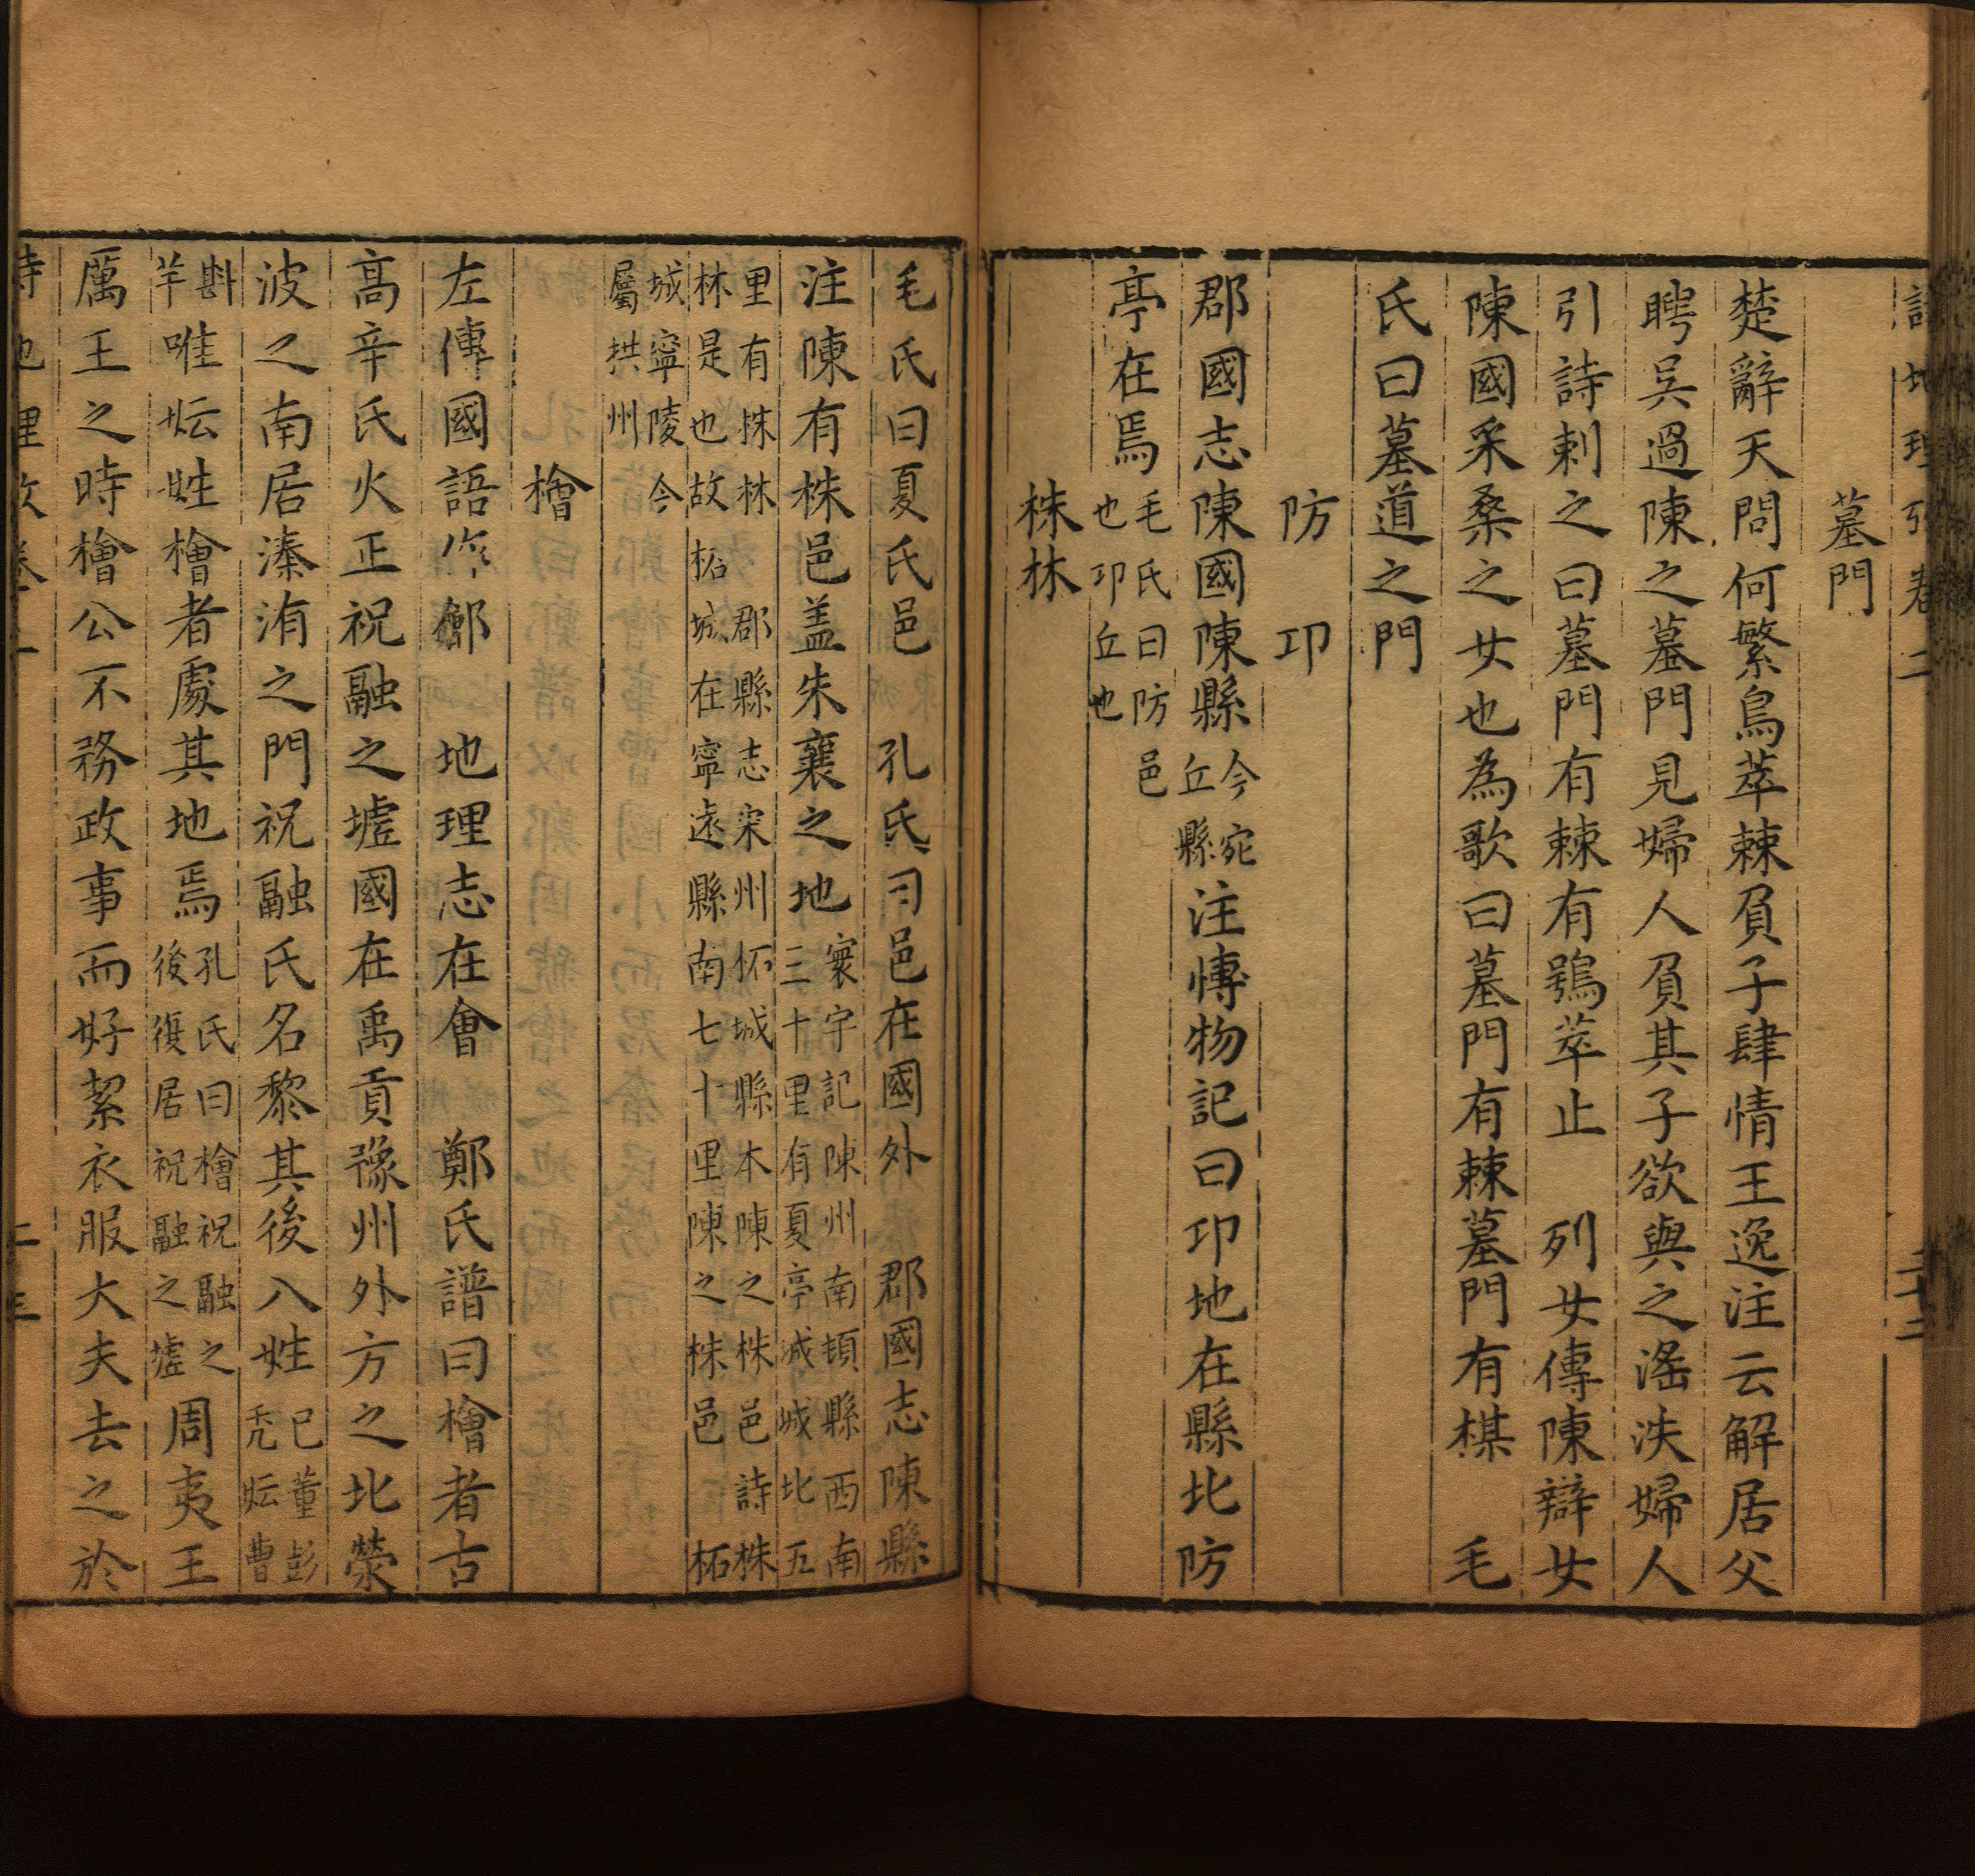 詩地理攷卷二 二十二
墓門
楚辭天問何繁鳥萃棘負子肆情王逸注云解居父
聘吳過陳之墓門見婦人負其子欲與之滛泆婦人
引詩刺之曰墓門有棘有鴞萃止 列女傳陳辯女
陳國采桑之女也為歌曰墓門有棘墓門有楳 毛
氏曰墓道之門
防 卭
郡國志陳國陳縣今宛丘縣注愽物記曰卭地在縣北防
亭在焉毛氏曰防邑也卭丘也
株林
毛氏曰夏氏邑 孔氏曰邑在國外 郡國志陳縣
注陳有株邑盖朱襄之地寰宇記陳州南頓縣西南三十里有夏亭城城北五
里有株林 郡縣志宋州柘城縣本陳之株邑詩株林是也故柘城在寧逺縣南七十里陳之株邑 柘
城寧陵今屬拱州
檜
左傳國語作鄶 地理志在會 鄭氏譜曰檜者古
高辛氏火正祝融之墟國在禹貢豫州外方之北滎
波之南居溱洧之門祝融氏名黎其後八姓已董彭秃妘曹
斟芊唯妘姓檜者處其地焉孔氏曰檜祝融之後復居祝融之墟周夷王
厲王之時檜公不務政事而好絜衣服大夫去之於
詩地理攷卷二 二十三